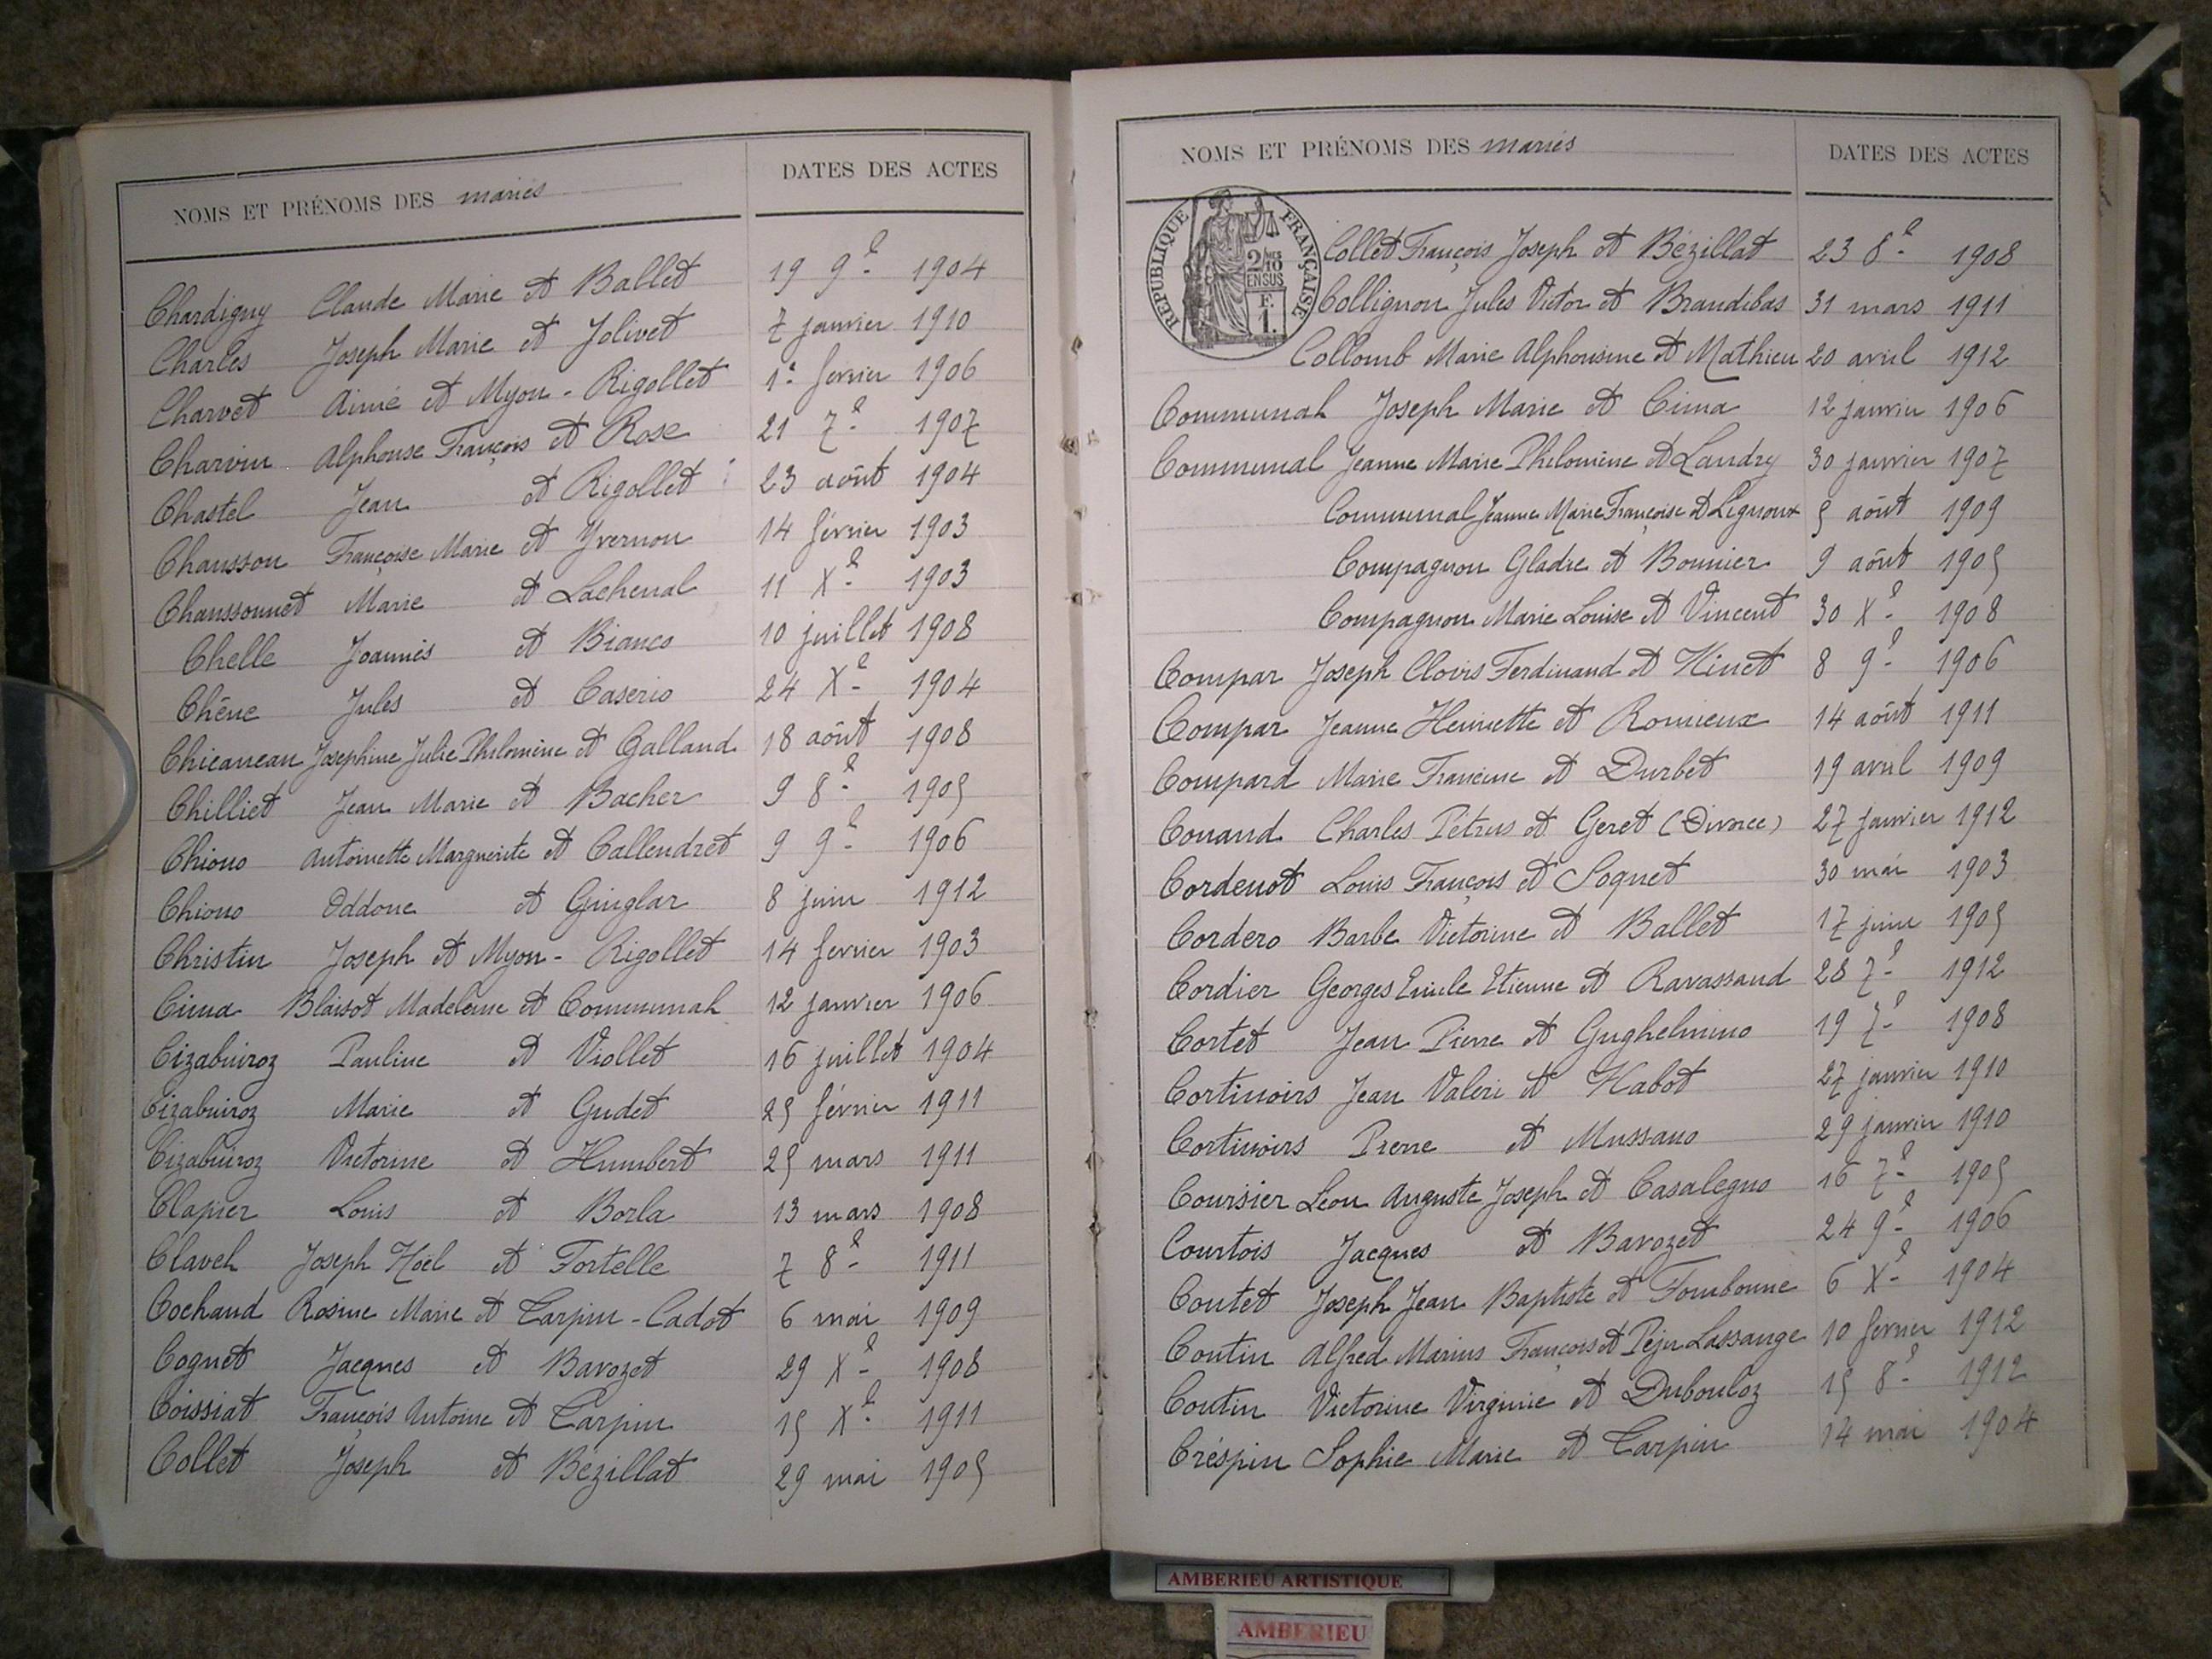 NOMS ET PRÉNOMS DES mariés DATES DES ACTES
Chardigny Claude Marie et Ballet 19 9e 1904
Charles Joseph Marie et Jolivet 7 janvier 1910
Charvet Aimé et Myon-Rigollet 1e fevrier 1906
Charvin Alphonse François et Rose 21 7e 1907
Chastel Jean et Rigollet 23 août 1904
Chausson Françoise Marie et Yvernon 14 février 1903
Chaussonnet Marie et Lachenal 11 Xe 1903
Chelle Joannès et Bianco 10 juillet 1908
Chêne Jules et Caserio 24 Xe 1904
Chicaneau Josephine Julie Philomène et Galland 18 août 1908
Chilliet Jean Marie et Bacher 9 8e 1905
Chiono Antoinette Marguerite et Callendret 9 9e 1906
Chiono Oddone et Ginglar 8 juin 1912
Christin Joseph et Myon-Rigollet 14 fevrier 1903
Cima Blaisot Madeleine et Communah 12 janvier 1906
Cizabuiroz Pauline et Viollet 16 juillet 1904
Cizabuiroz Marie et Gudet 25 février 1911
Cizabuiroz Victorine et Humbert 25 mars 1911
Clapier Louis et Borla 13 mars 1908
Claveh Joseph Noël et Fortelle 7 8e 1911
Cochand Rosine Marie et Carpin-Cadot 6 mai 1909
Cognet Jacques et Bavozet 29 Xe 1908
Coissiat François Antoine et Carpin 15 Xe 1911
Collet Joseph et Bézillat 29 mai 1905
NOMS ET PRÉNOMS DES mariés DATES DES ACTES
RÉPUBLIQUE FRANÇAISE
2/10 MES
EN SUS
F.
1.
Collet François Joseph et Bézillat 23 8e 1908
Collignon Jules Victor et Brandibas 31 mars 1911
Collomb Marie Alphonsine et Mathieu 20 avril 1912
Communah Joseph Marie et Cima 12 janvier 1906
Communal Jeanne Marie Philomène et Landry 30 janvier 1907
Communal Jeanne Marie Françoise et Lignoux 5 août 1909
Compagnon Gladie et Bonnier 9 août 1905
Compagnon Marie Louise et Vincent 30 Xe 1908
Compar Joseph Clovis Ferdinand et Ninet 8 9e 1906
Compar Jeanne Henriette et Romieux 14 août 1911
Compard Marie Francine et Durbet 19 avril 1909
Conand Charles Pétrus et Geret (Divorce) 27 janvier 1912
Cordenot Louis François et Soquet 30 mai 1903
Cordero Barbe Victorine et Ballet 17 juin 1905
Cordier Georges Emile Etienne et Ravassaud 28 7e 1912
Cortet Jean Pierre et Gughelmino 19 7e 1908
Cortinoirs Jean Valéri et Nabot 27 janvier 1910
Cortinoirs Pierre et Mussano 29 janvier 1910
Coursier Léon Auguste Joseph et Casalegno 16 7e 1905
Courtois Jacques et Bavozet 24 9e 1906
Coutet Joseph Jean Baptiste et Fombonne 6 Xe 1904
Coutin Alfred Marius François et Péju Lassange 10 fevrier 1912
Coutin Victorine Virginie et Dubouloz 15 8e 1912
Créspin Sophie Marie et Carpin 14 mai 1904
AMBERIEU ARTISTIQUE
AMBERIEU